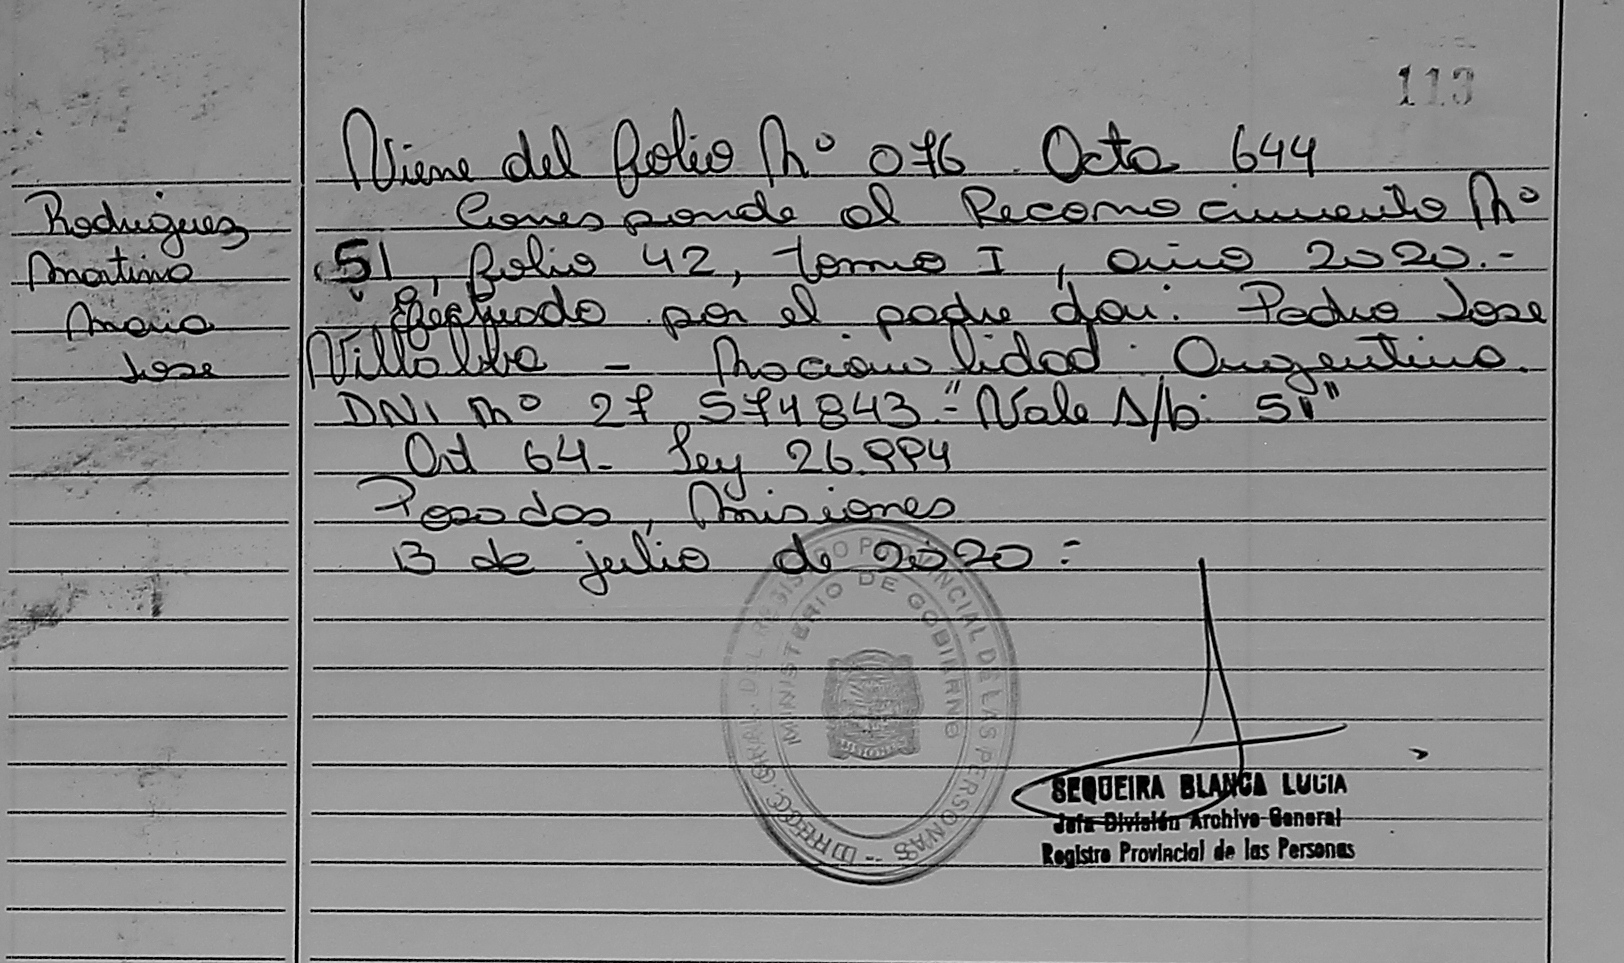 113
Viene del folio Nº 076 Acta 644
Rodriguez
Martina
Maria
Jose
Corresponde al Reconocimiento Nº
51, folio 42, tomo I, año 2020.-
Efectuado por el padre don: Pedro Jose
Villalba - Nacionalidad: Argentina.
DNI Nº 27 574843 - "Vale S/b: 51"
Art 64 - Ley 26.994
Posadas, Misiones
13 de julio de 2020 =
DIRECC. GRAL. DEL REGISTRO PROVINCIAL DE LAS PERSONAS --
MINISTERIO DE GOBIERNO
MISIONES
SEQUEIRA BLANCA LUCIA
Jefa División Archivo General
Registro Provincial de las Personas